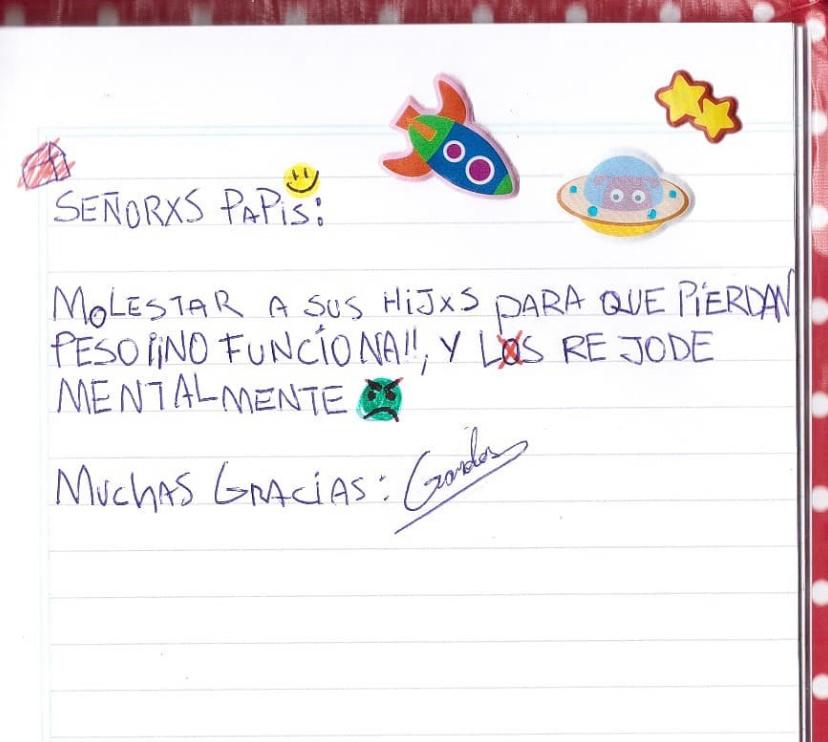 SEÑORXS PAPIS:
MOLESTAR A SUS HIJXS PARA QUE PIERDAN
PESO ¡¡NO FUNCIONA!!, Y LXS RE JODE
MENTALMENTE
MUCHAS GRACIAS: